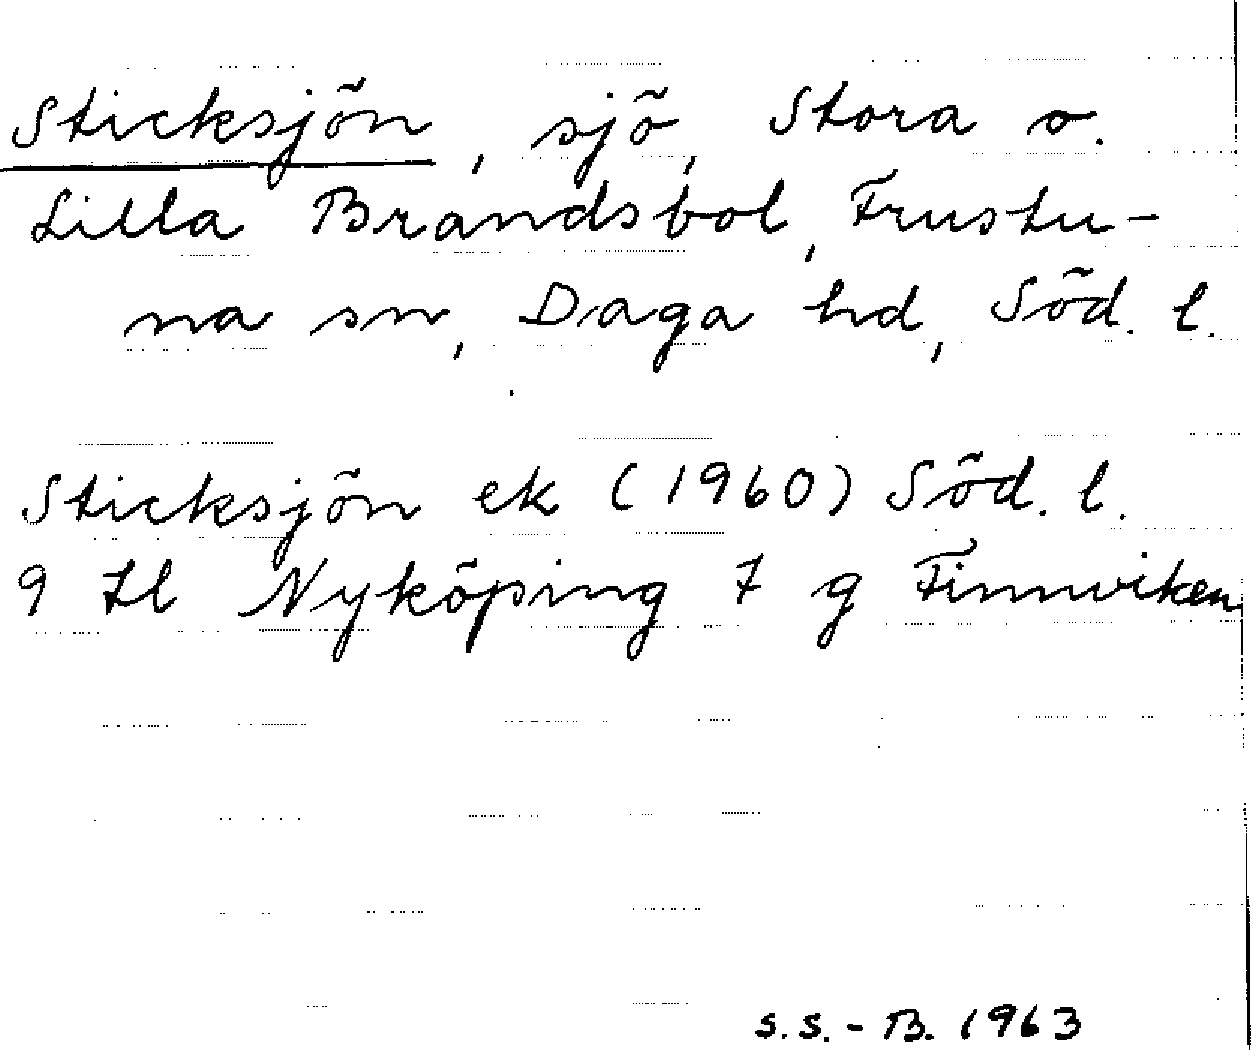 Sticksjön, sjö, Stora o.
Lilla Brandsbol, Frustu-
na sn, Daga hd, Söd. l.
Sticksjön ek (1960) Söd. l.
9 Il Nyköping 7 g Finnviken
S.S.-B. 1963